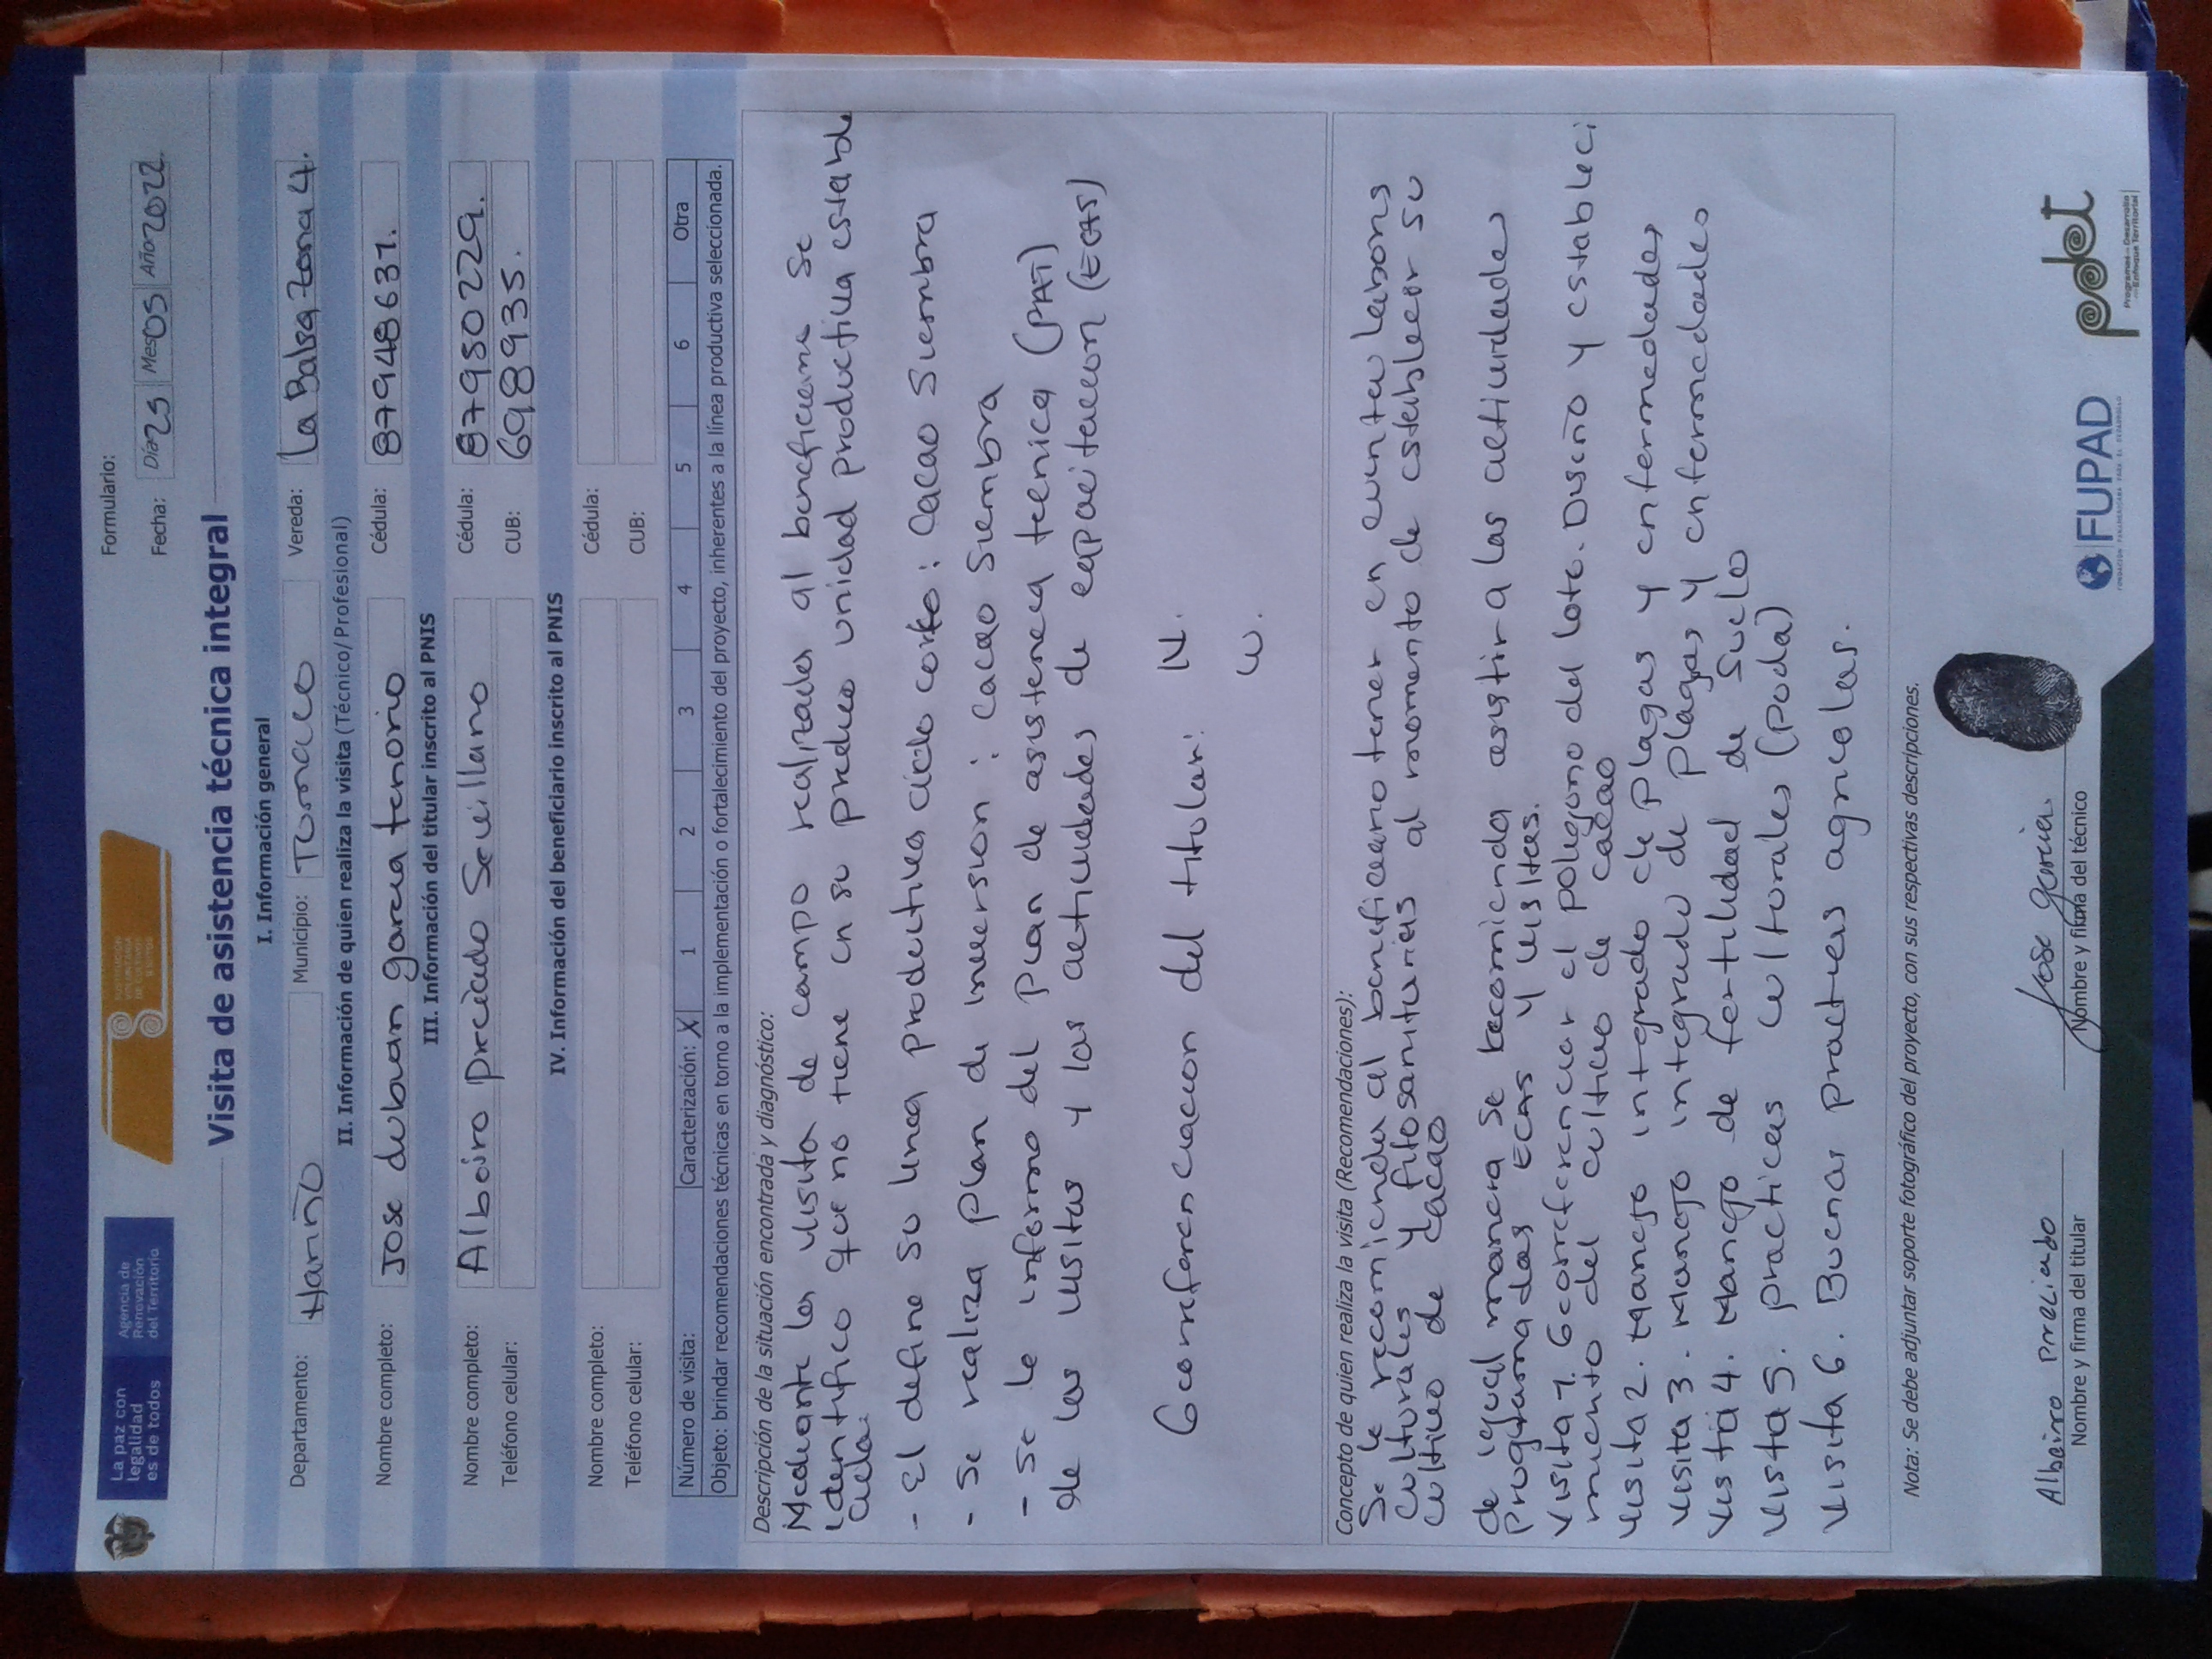 La paz con
legalidad
es de todos
Agencia de
Renovación
del Territorio
SUSTITUCIÓN
VOLUNTARIA
DE CULTIVOS
ILÍCITOS
Formulario:
Fecha: Día 25 Mes 05 Año 2022.
Visita de asistencia técnica integral
I. Información general
Departamento: Nariño Municipio: Tumaco Vereda: La Balsa zona 4.
II. Información de quien realiza la visita (Técnico/ Profesional)
Nombre completo: Jose duban garcia tenorio Cédula: 87948631.
III. Información del titular inscrito al PNIS
Nombre completo: Albeiro preciado Sevillano Cédula: 87950229.
Teléfono celular: CUB: 698935.
IV. Información del beneficiario inscrito al PNIS
Nombre completo: Cédula:
Teléfono celular: CUB:
Número de visita: Caracterización: X 1 2 3 4 5 6 Otra
Objeto: brindar recomendaciones técnicas en torno a la implementación o fortalecimiento del proyecto, inherentes a la línea productiva seleccionada.
Descripción de la situación encontrada y diagnóstico:
Mediante la visita de campo realizada al beneficiario Se
identifico que no tiene en su predio unidad productiva estable
cida.
- El define su linea productiva ciclo corto: Cacao Siembra
- Se realiza plan de inversion: cacao Siembra
- Se le informo del plan de asistencia tecnica (PAT)
de las visitas y las actividades de capacitacion (ECAS)
Georreferenciacion del titular: N.
W.
Concepto de quien realiza la visita (Recomendaciones):
Se le recomienda al beneficiario tener en cuenta labores
Culturales y fitosanitarias al momento de establecer su
Cultivo de cacao
de igual manera se recomienda asistir a las actividades
Programadas ECAS y visitas.
Visita 1. Georreferenciar el poligono del lote. Diseño y estableci
miento del cultivo de cacao
Visita 2. Manejo integrado de Plagas y enfermedades
Visita 3. Manejo integrado de Plagas y enfermedades
Vista 4. Manejo de fertilidad de Suelo
Vista 5. practicas culturales (poda)
Visita 6. Buenas practicas agricolas.
Nota: Se debe adjuntar soporte fotográfico del proyecto, con sus respectivas descripciones.
Albeiro Preciado
Nombre y firma del titular
Jose garcia
Nombre y firma del técnico
FUPAD
FUNDACIÓN PANAMERICANA PARA EL DESARROLLO
pdet
Programas de Desarrollo
con Enfoque Territorial